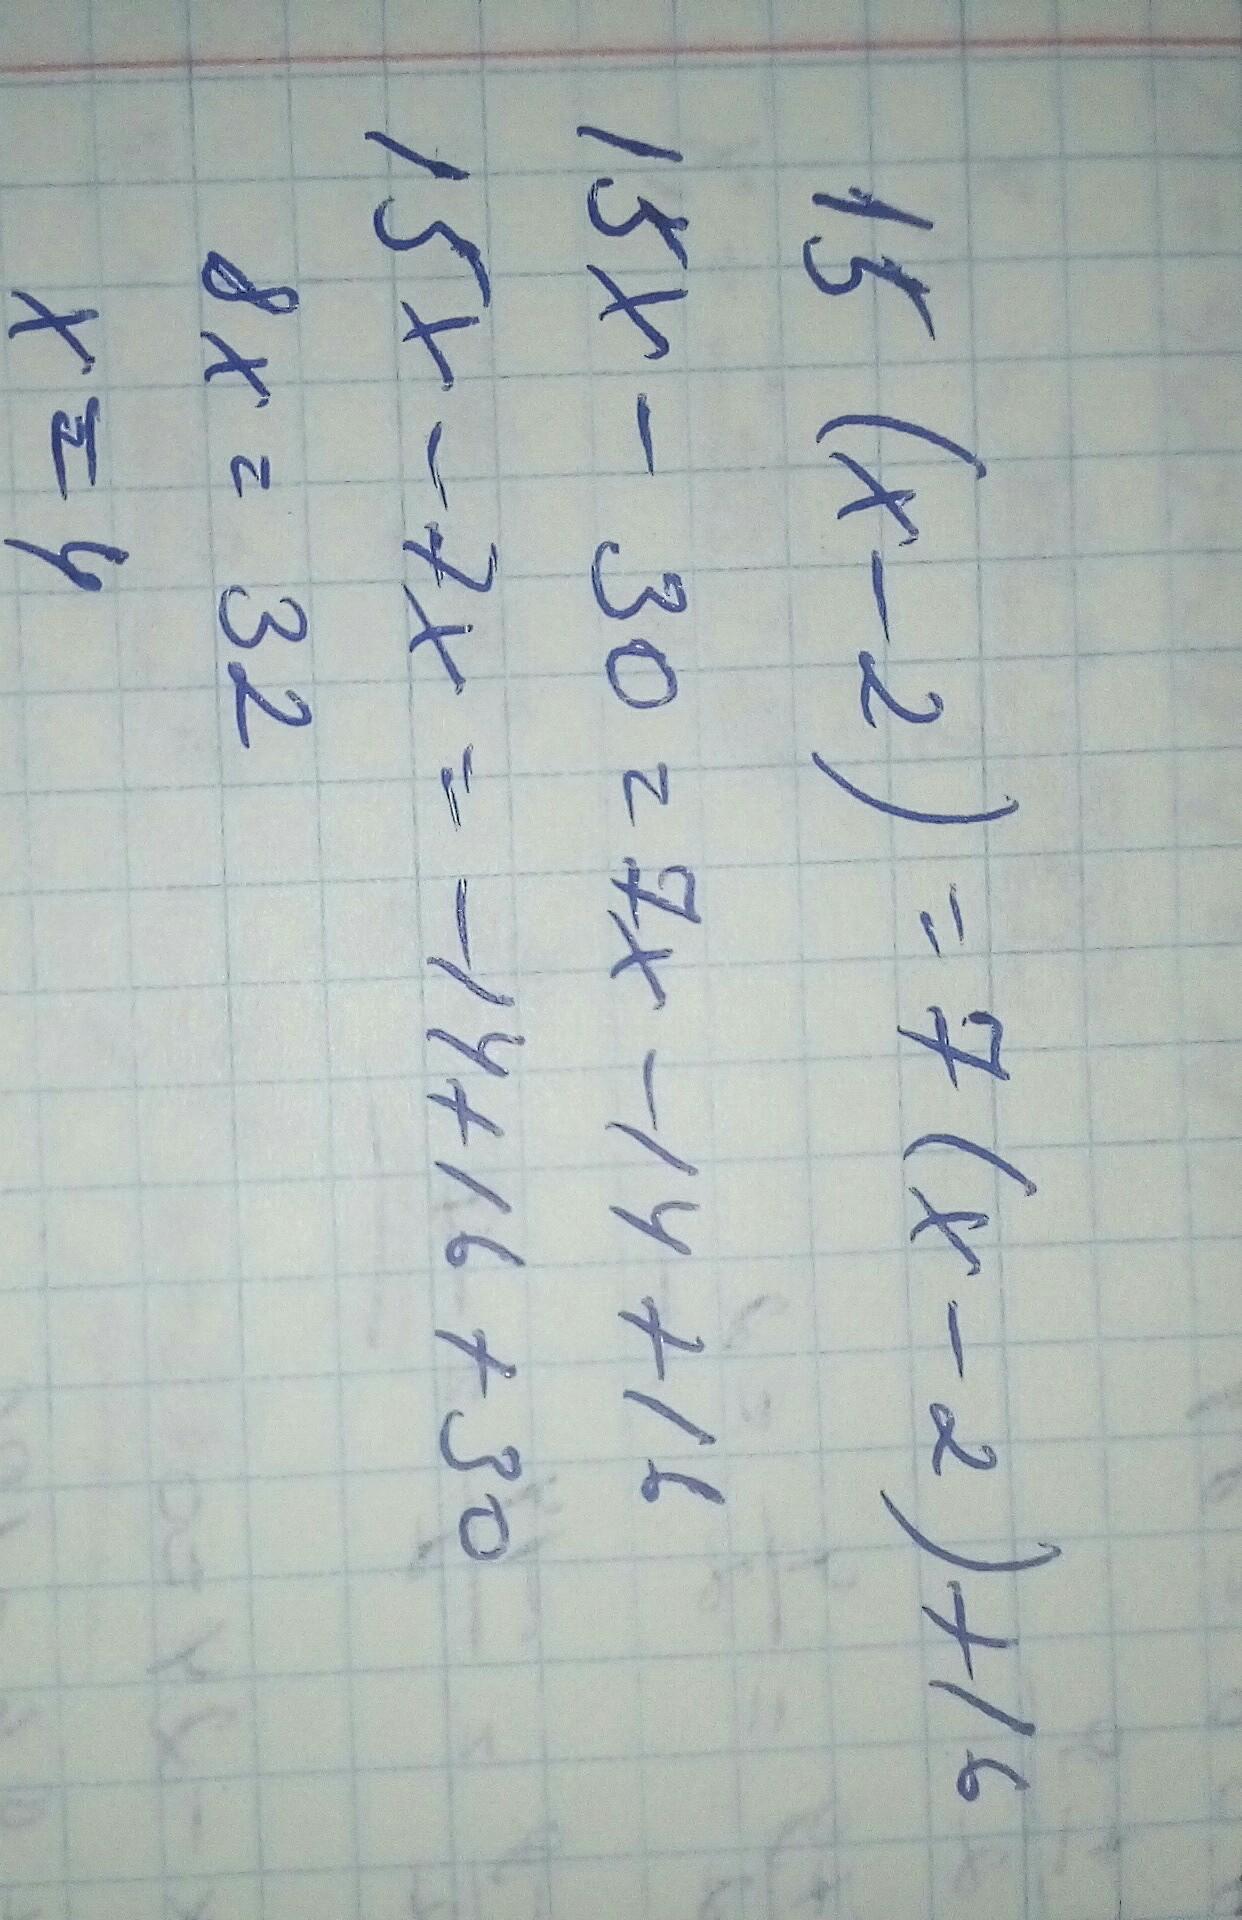 15 (x-2) = 7 (x-2) + 16
15x - 30 = 7x - 14 + 16
15x - 7x = -14 + 16 + 30
8x = 32
x = 4